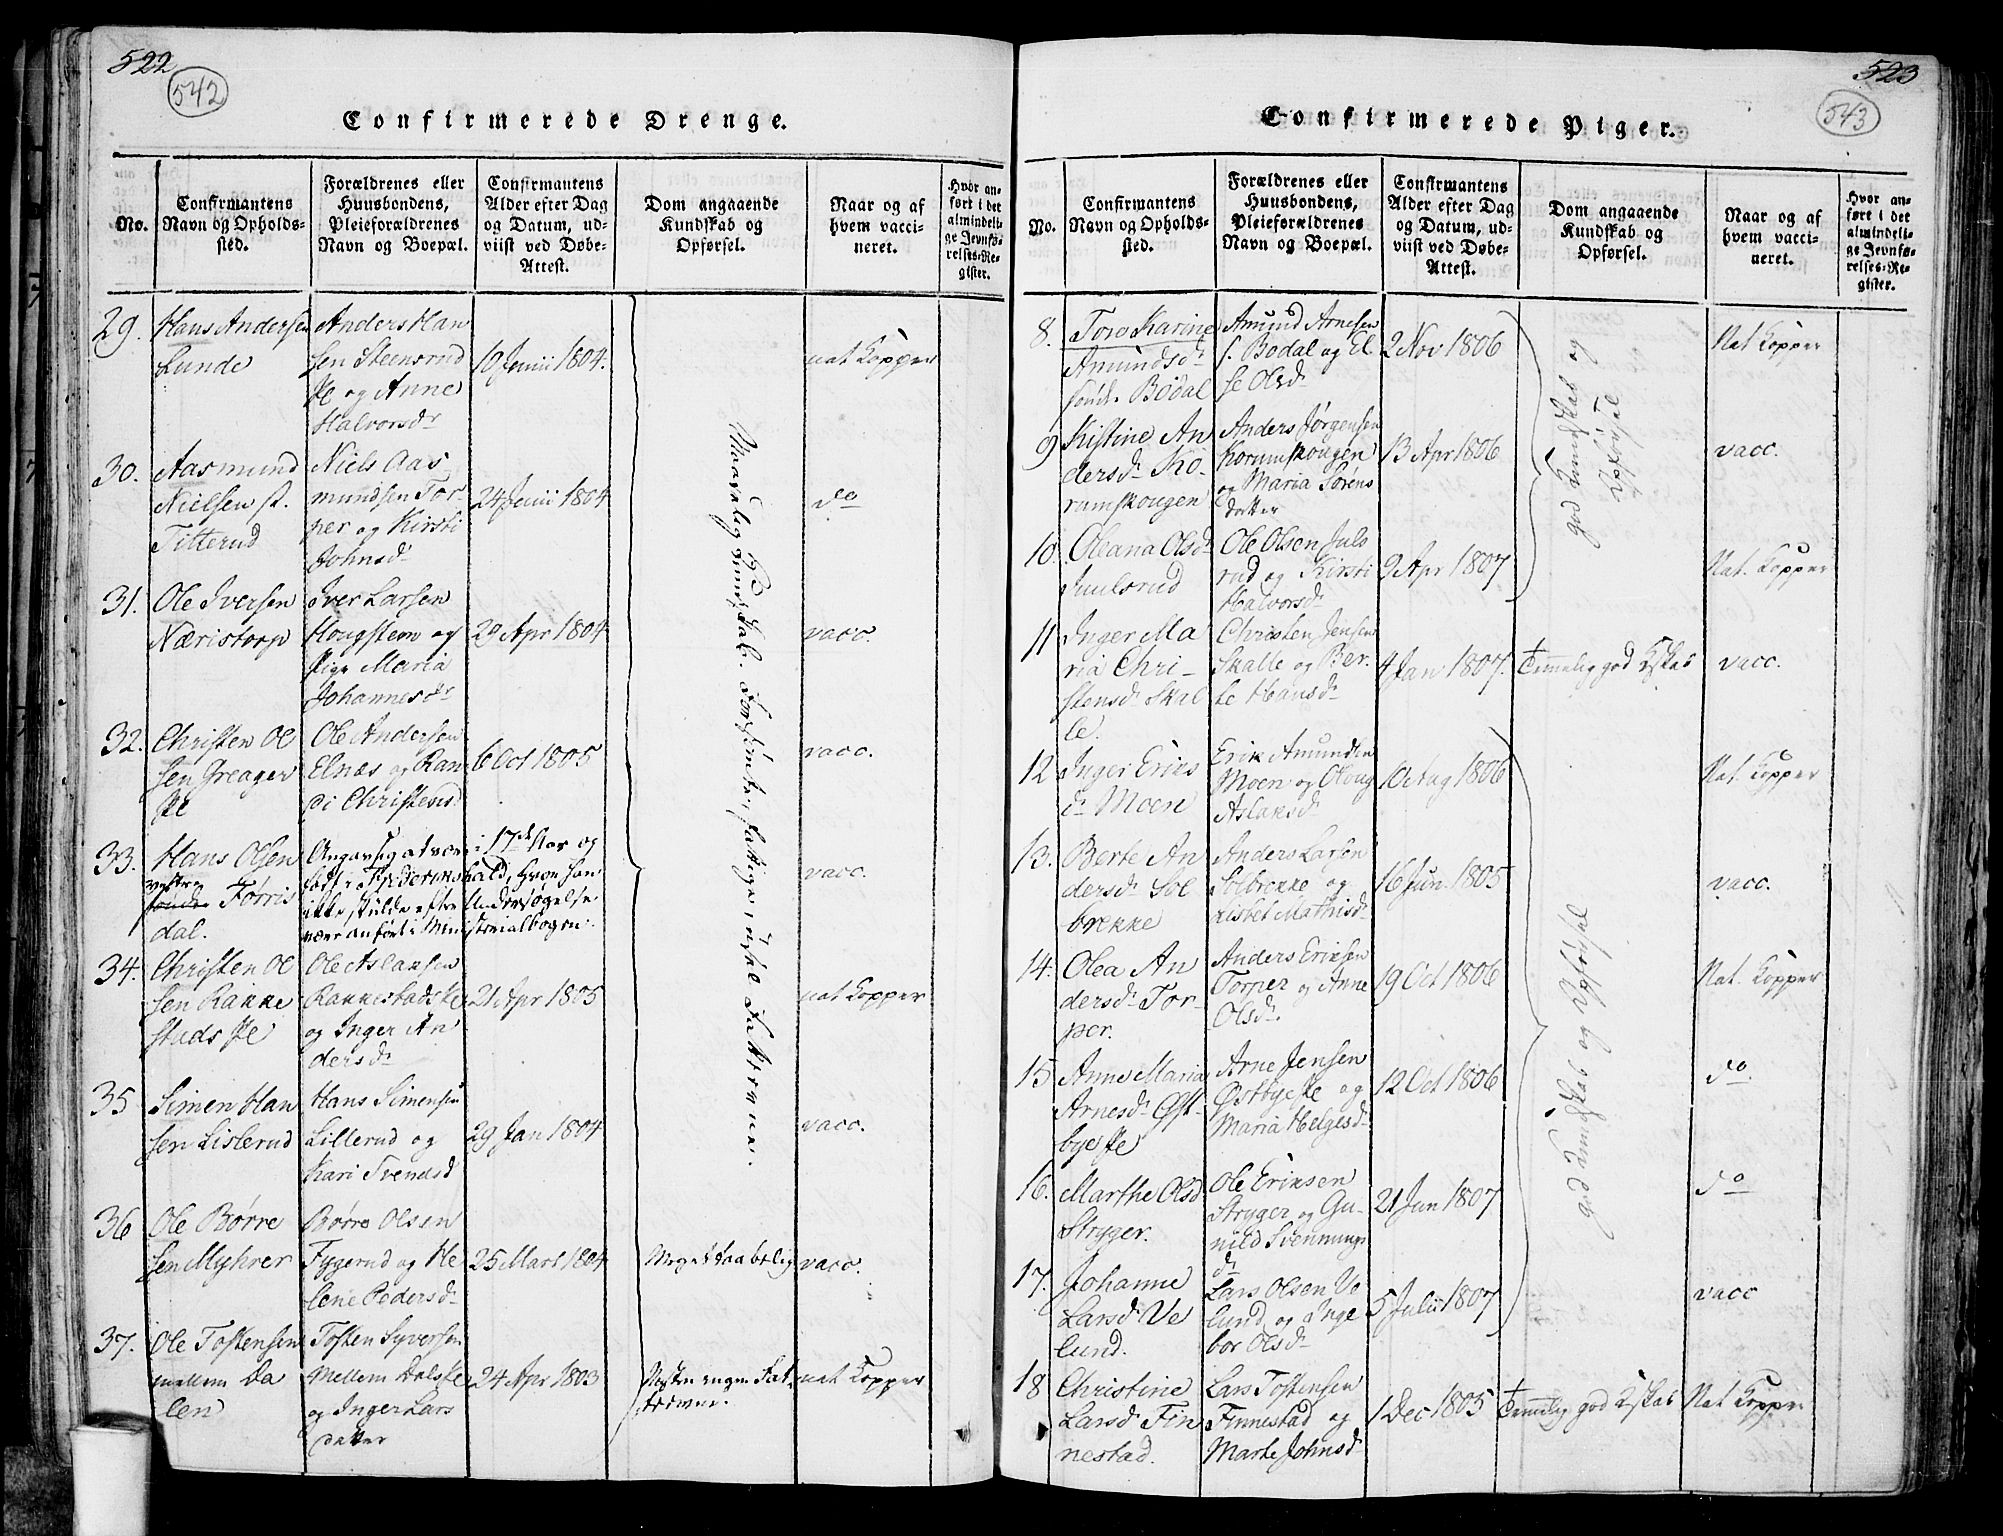 522
542
Confirmerede Drenge.
No.
Confirmantens
Navn og Opholds-
sted.
Forældrenes eller
Huusbondens,
Pleieforældrenes
Navn og Boepæl.
Confirmantens
Alder efter Dag
og Datum, ud-
viist ved Døbe-
Attest.
Dom angaaende
Kundskab og
Opførsel.
Naar og af
hvem vacci-
neret.
Hvor an-
ført i det
almindeli-
ge Jevnfø-
relses-Re-
gister.
29.
Hans Andersen
Lunde
Anders Han
sen Steensrud
og Anne
Halvorsdr
10 Junii 1804.
nat Kopper
30.
Aasmund
Nielsen
Titterud
Niels Aas
mundsen Tor
per og Kirsti
Johnsd
24 Junii 1804
do
31.
Ole Iversen
Næristorp
Iver Larsen
Hougsteen og
Pige Maria
Johannesdr
29 Apr 1804
vacc.
32.
Christen Ol
sen Greager
Ole Andersen
Elnæs og Ran
di Christensd
6 Oct 1805
vacc.
33.
Hans Olsen
vestre
Førris
dal.
Angav sig at være i 17de Aar og
født i Friderikshald, hvor han
ikke skulde efter Undersøgelse
være anført i Ministerialbogen.
vacc.
34.
Christen Ol
sen Rakke
stads
Ole Aslaksen
Rakkestads
og Inger An
dersdr
21 Apr 1805
nat Kopper
35
Simen Han
sen Lislerud
Hans Simensen
Lillerud og
Kari Svendsd
29 Jan 1804
vacc.
36
Ole Børre
sen Myhrer
Børre Olsen
Fygerud og He
lene Pedersdr
25 Mart 1804
Meget taabelig
vacc.
37.
Ole Tostensen
mellem Da
len
Tosten Syversen
Mellem Dals
og Inger Lars
datter
24 Apr 1803
Næsten ingen Fat
nat Kopper
523
543
Confirmerede Piger.
No.
Confirmantens
Navn og Opholds-
sted.
Forældrenes eller
Huusbondens,
Pleieforældrenes
Navn og Boepæl.
Confirmantens
Alder efter Dag
og Datum, ud-
viist ved Døbe-
Attest.
Dom angaaende
Kundskab og
Opførsel.
Naar og af
hvem vacci-
neret.
Hvor an-
ført i det
almindeli-
ge Jevnfø-
relses-Re-
gister.
8.
Toro Karine
Amundsdr
søndr Bødal
Amund Arnesen
s. Bødal og El
se Olsdr
2 Nov 1806
god Kundskab og
Opførsel
Nat Kopper
9
Kistine An
dersdr Ko-
rumskougen
Anders Jørgensen
Korumskougen
og Maria Sørens
datter
13 Apr 1806
vacc.
10.
Oleana Olsdr
Juulsrud
Ole Olsen Juls
rud og Kirsti
Halvorsdr
9 Apr 1807
Nat. Kopper
11
Inger Ma
ria Chri-
stensdr Skal
le.
Christen Jensen
Skalle og Ber
te Hansdr
4 Jan 1807.
Temmelig god Kskab
vacc.
12
Inger Eriks
dr Moen
Erik Amundsen
Moen og Olaug
Aslaksdr
10 Aug 1806
god Kundskab og Opførsel
Nat. Kopper
13.
Berte An
dersdr Sol
brekke
Anders Larsen
Solbrekke og
Lisbet Mathisdr
16 Jun 1805
vacc.
14.
Olea An
dersdr Tor-
per.
Anders Eriksen
Torper og Anne
Olsdr
19 Oct 1806
Nat. Kopper
15
Anne Maria
Arnesdr Øst-
bye
Arne Jensen
Østbye og
Maria Helgesdr
12 Oct 1806
do
16.
Marthe Olsd
Stryger.
Ole Eriksen
Stryger og Gu-
nild Svennungs
dr
21 Jun 1807
do
17.
Johanne
Larsdr Ve
lund.
Lars Olsen Ve
lund og Inge
bor Olsdr
5 Julii 1807
vacc
18
Christine
Larsdr Fin
nestad.
Lars Tostensen
Finnestad og
Marte Johnsdr
1 Dec 1805
Temmelig god Kskab
Nat Kopper